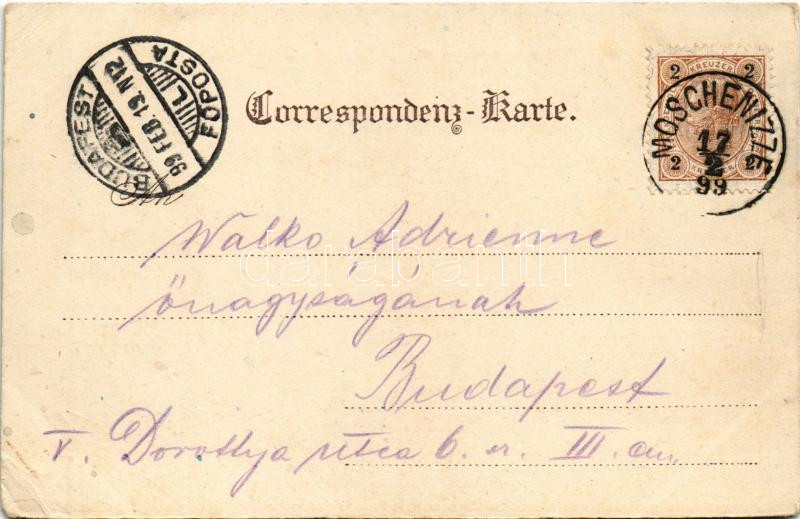 BUDAPEST
99 FEB. 19. N12
FŐPOSTA
Correspondenz-Karte.
2 KREUZER 2
MOSCHENIZZE
17
2
99
2 KREUZER 2
An
Walko Adrienne
darabanth
önagyságának
Budapest
V. Dorottya utca 6. sz. III. em.